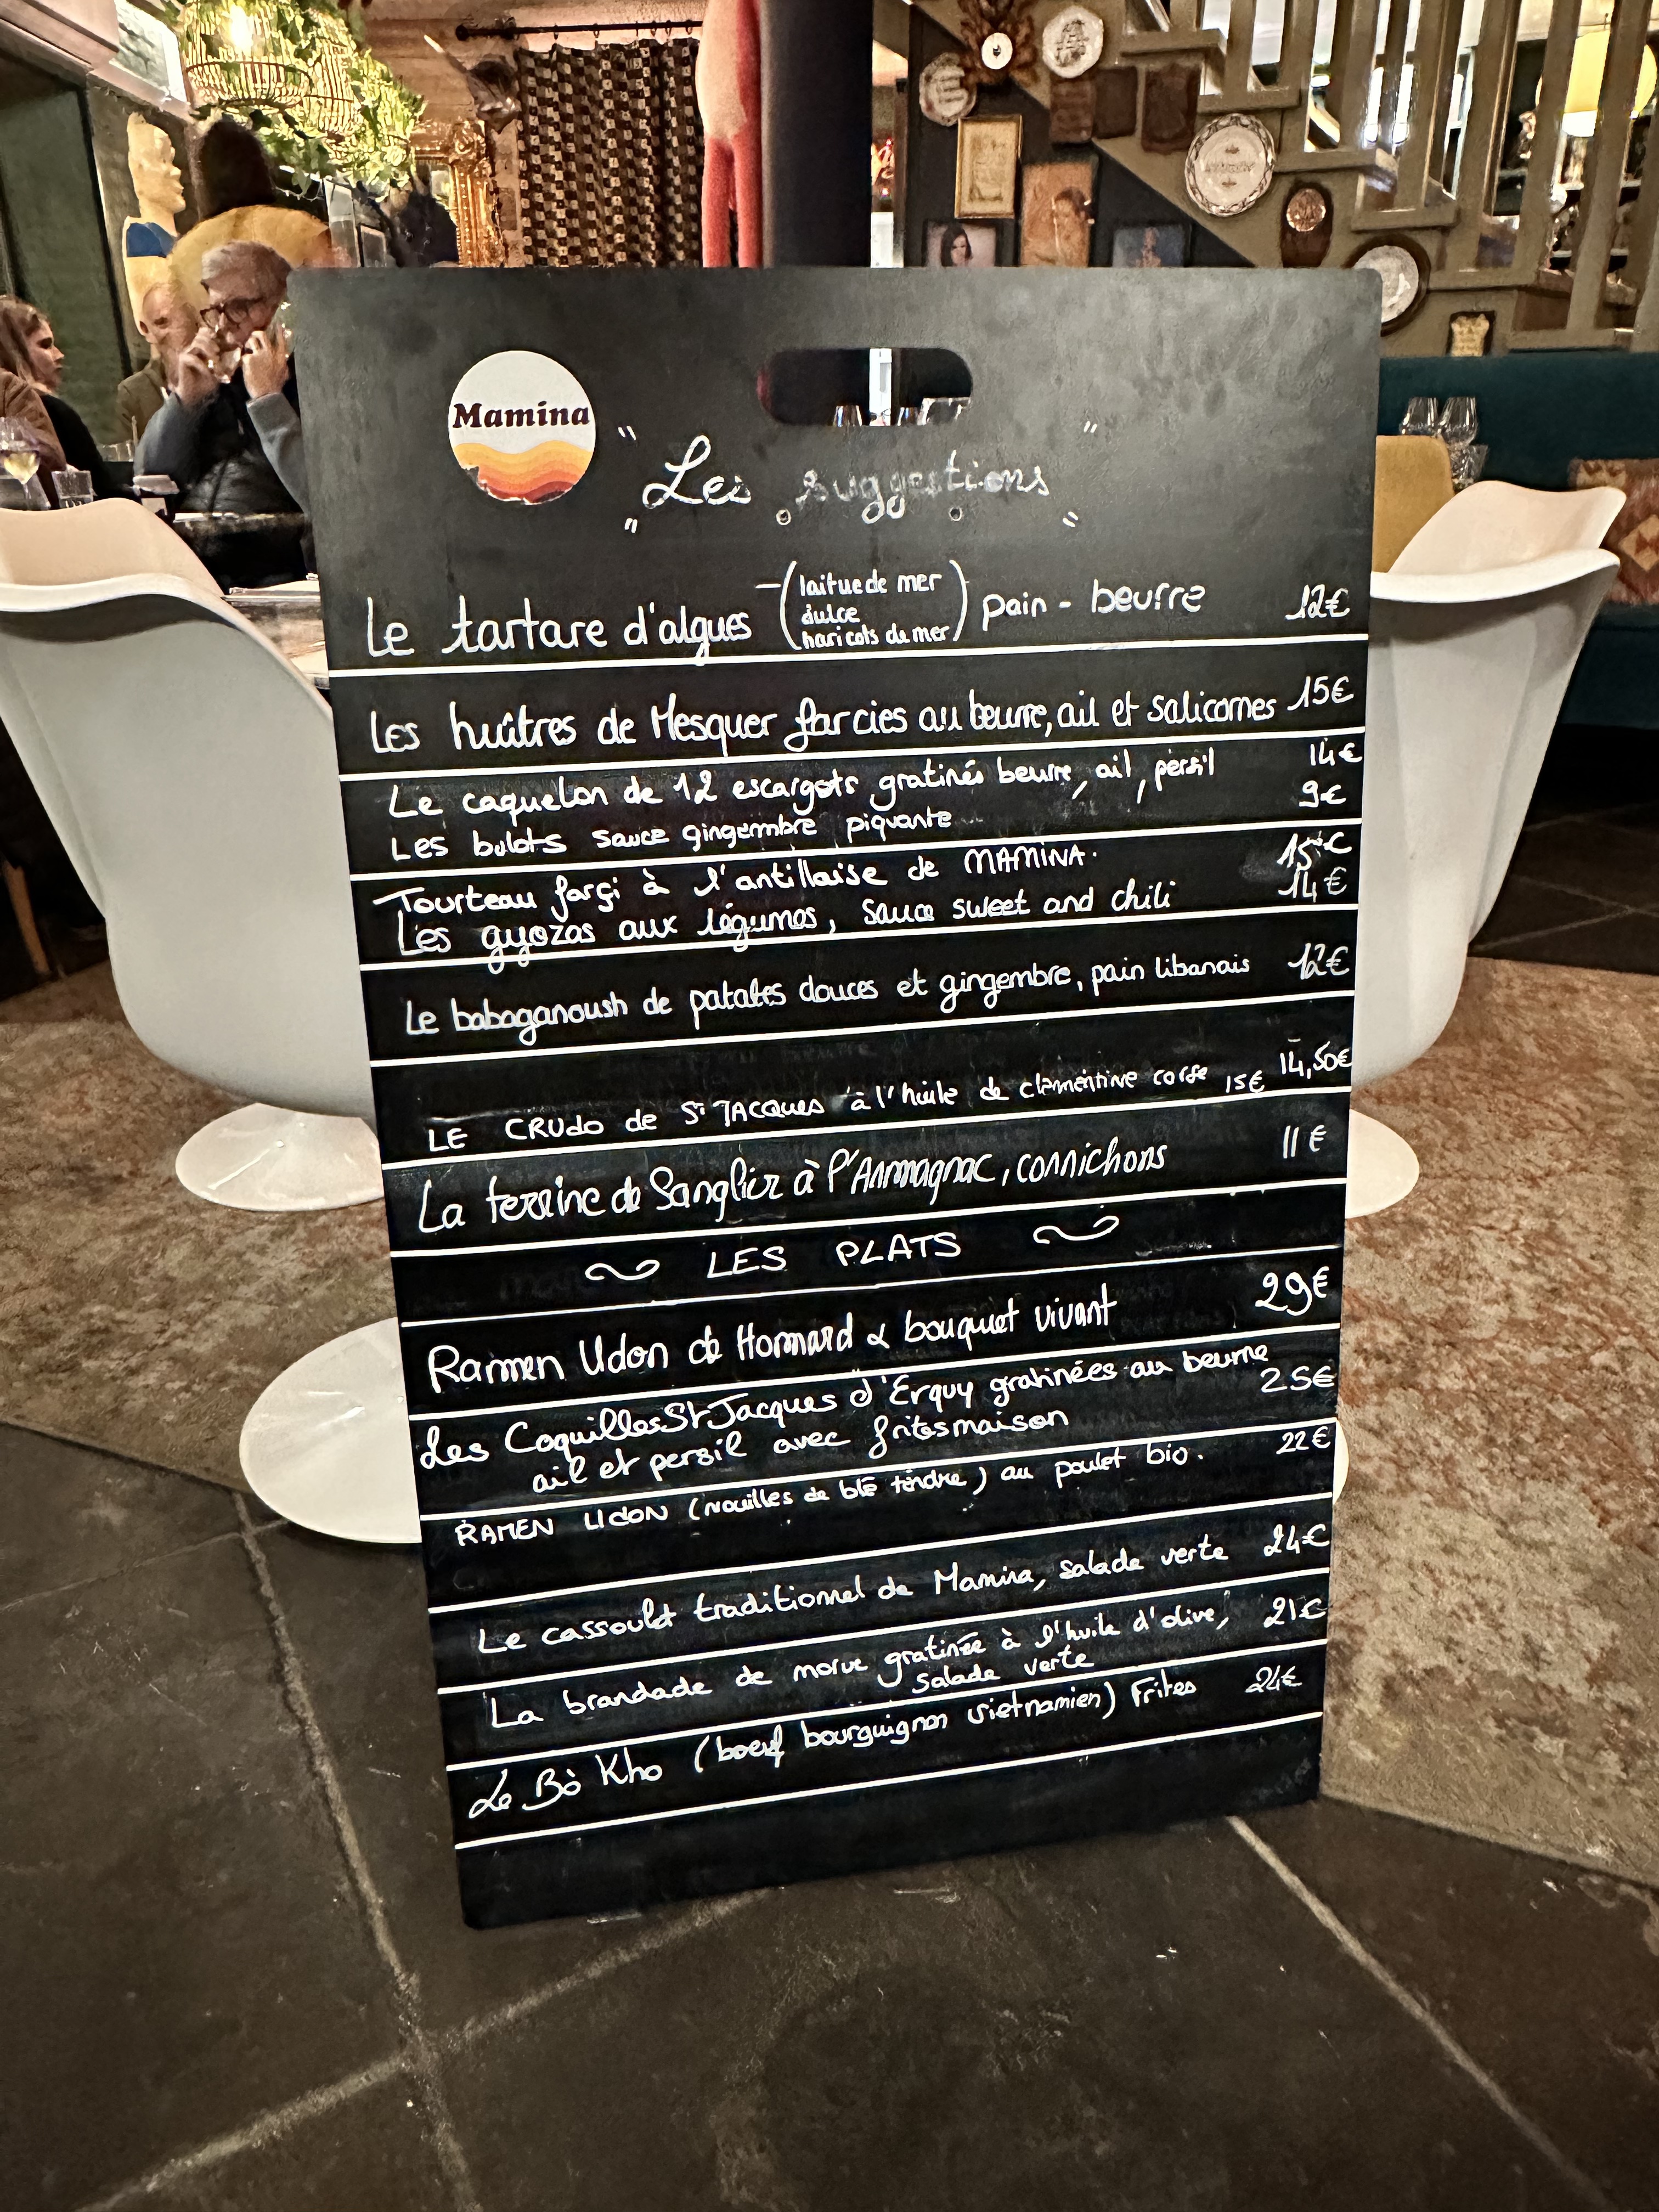 Mamina
" Les suggestions "
Le tartare d'algues (laitue de mer
dulce
haricots de mer) pain - beurre 12€
Les huîtres de Mesquer farcies au beurre, ail et salicornes 15€
Le caquelon de 12 escargots gratinés beurre, ail, persil 14€
Les bulots sauce gingembre piquante 9€
Tourteau farçi à l'antillaise de MAMINA. 15€
Les gyozas aux légumes, sauce sweet and chili 14€
Le babaganoush de patates douces et gingembre, pain libanais 12€
LE CRUdo de St JACQUES à l'huile de clémentine corse 15€ 14,50€
La terrine de Sanglier à l'Armagnac, cornichons 11€
LES PLATS
Ramen Udon de Homard & bouquet vivant 29€
Les Coquilles St Jacques d'Erquy gratinées au beurre
ail et persil avec frites maison 25€
RAMEN UdON (nouilles de blé tendre) au poulet bio. 22€
Le cassoulet traditionnel de Mamina, salade verte 24€
La brandade de morue gratinée à l'huile d'olive, 21€
salade verte
Le Bò Kho (boeuf bourguignon vietnamien) Frites 24€